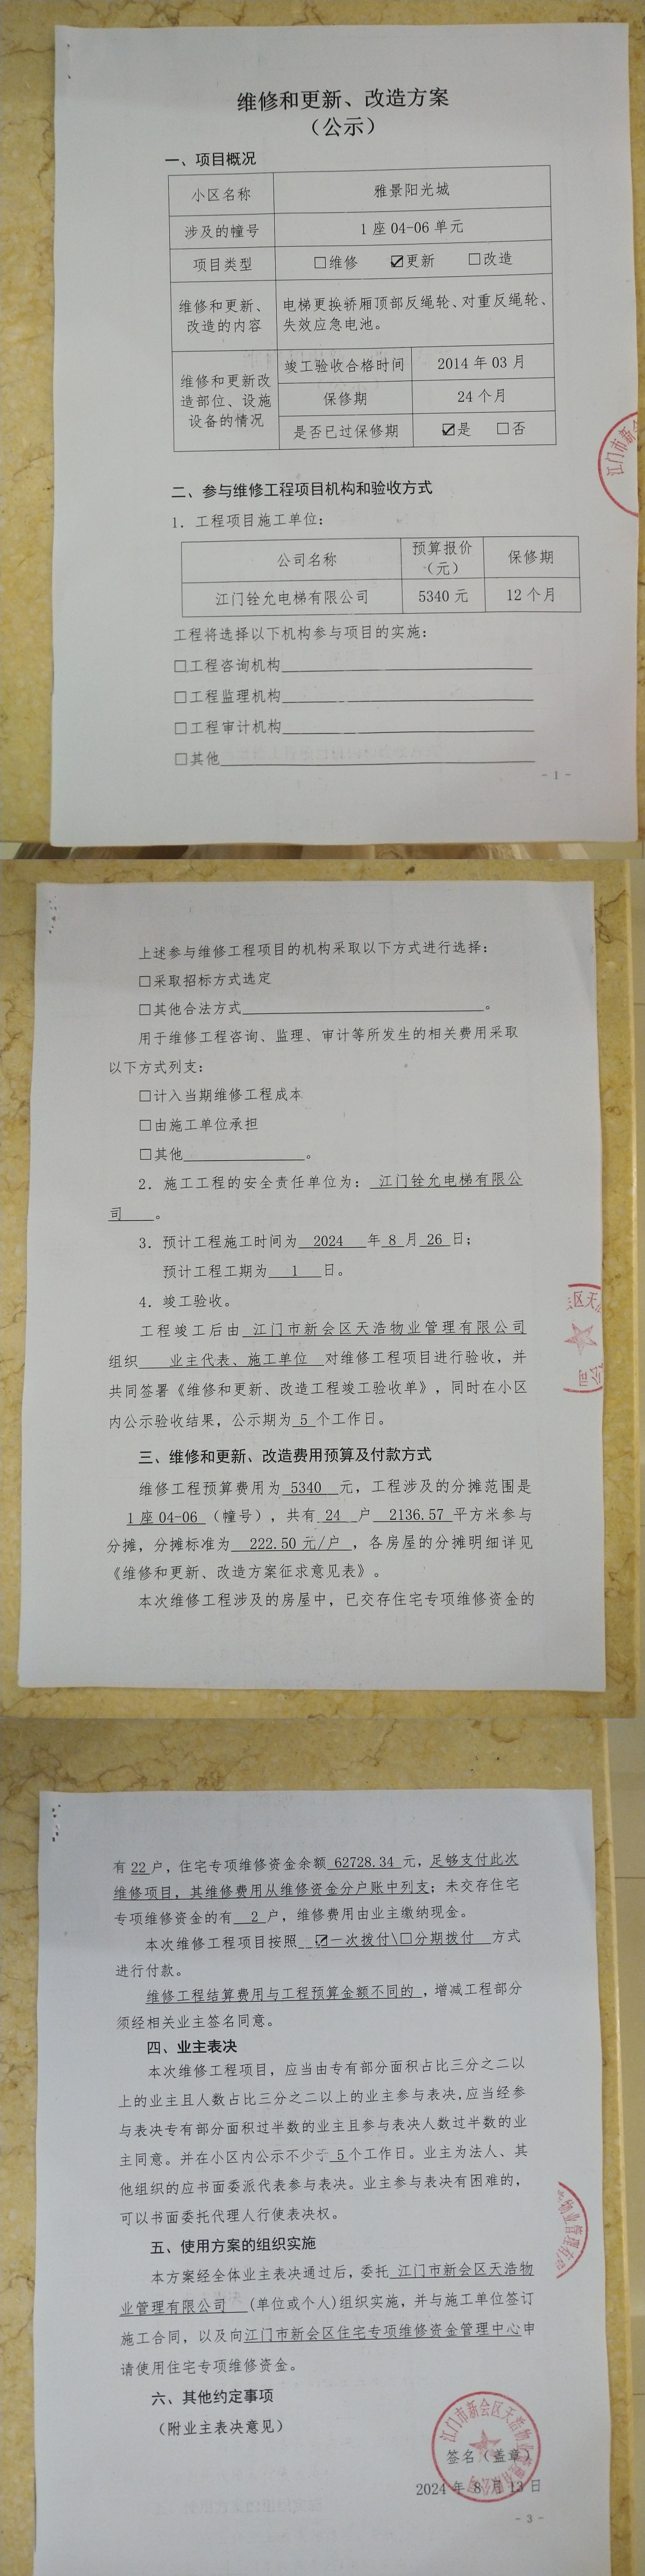 维修和更新、改造方案
（公示）
一、项目概况
小区名称 雅景阳光城
涉及的幢号 1座04-06单元
项目类型 □维修 ☑更新 □改造
维修和更新、改造的内容 电梯更换轿厢顶部反绳轮、对重反绳轮、
失效应急电池。
维修和更新改造部位、设施设备的情况 竣工验收合格时间 2014年03月
保修期 24个月
是否已过保修期 ☑是 □否
二、参与维修工程项目机构和验收方式
1. 工程项目施工单位：
公司名称 预算报价（元） 保修期
江门铨允电梯有限公司 5340元 12个月
工程将选择以下机构参与项目的实施：
□工程咨询机构
□工程监理机构
□工程审计机构
□其他
- 1 -
江门市新会
上述参与维修工程项目的机构采取以下方式进行选择：
□采取招标方式选定
□其他合法方式。
用于维修工程咨询、监理、审计等所发生的相关费用采取
以下方式列支：
□计入当期维修工程成本
□由施工单位承担
□其他。
2. 施工工程的安全责任单位为：江门铨允电梯有限公
司。
3. 预计工程施工时间为 2024 年 8 月 26 日；
预计工程工期为 1 日。
4. 竣工验收。
工程竣工后由 江门市新会区天浩物业管理有限公司
组织 业主代表、施工单位 对维修工程项目进行验收，并
共同签署《维修和更新、改造工程竣工验收单》，同时在小区
内公示验收结果，公示期为 5 个工作日。
三、维修和更新、改造费用预算及付款方式
维修工程预算费用为 5340 元，工程涉及的分摊范围是
1座04-06（幢号），共有 24 户 2136.57 平方米参与
分摊，分摊标准为 222.50元/户，各房屋的分摊明细详见
《维修和更新、改造方案征求意见表》。
本次维修工程涉及的房屋中，已交存住宅专项维修资金的
区天浩
公司
有 22 户，住宅专项维修资金余额 62728.34 元，足够支付此次
维修项目，其维修费用从维修资金分户账中列支；未交存住宅
专项维修资金的有 2 户，维修费用由业主缴纳现金。
本次维修工程项目按照 ☑一次拨付\□分期拨付 方式
进行付款。
维修工程结算费用与工程预算金额不同的，增减工程部分
须经相关业主签名同意。
四、业主表决
本次维修工程项目，应当由专有部分面积占比三分之二以
上的业主且人数占比三分之二以上的业主参与表决，应当经参
与表决专有部分面积过半数的业主且参与表决人数过半数的业
主同意。并在小区内公示不少于 5 个工作日。业主为法人、其
他组织的应书面委派代表参与表决。业主参与表决有困难的，
可以书面委托代理人行使表决权。
五、使用方案的组织实施
本方案经全体业主表决通过后，委托 江门市新会区天浩物
业管理有限公司 (单位或个人)组织实施，并与施工单位签订
施工合同，以及向江门市新会区住宅专项维修资金管理中心申
请使用住宅专项维修资金。
六、其他约定事项
（附业主表决意见）
物业管理有
江门市新会区天浩物业管理有限公司
签名（盖章）
2024年8月13日
- 3 -